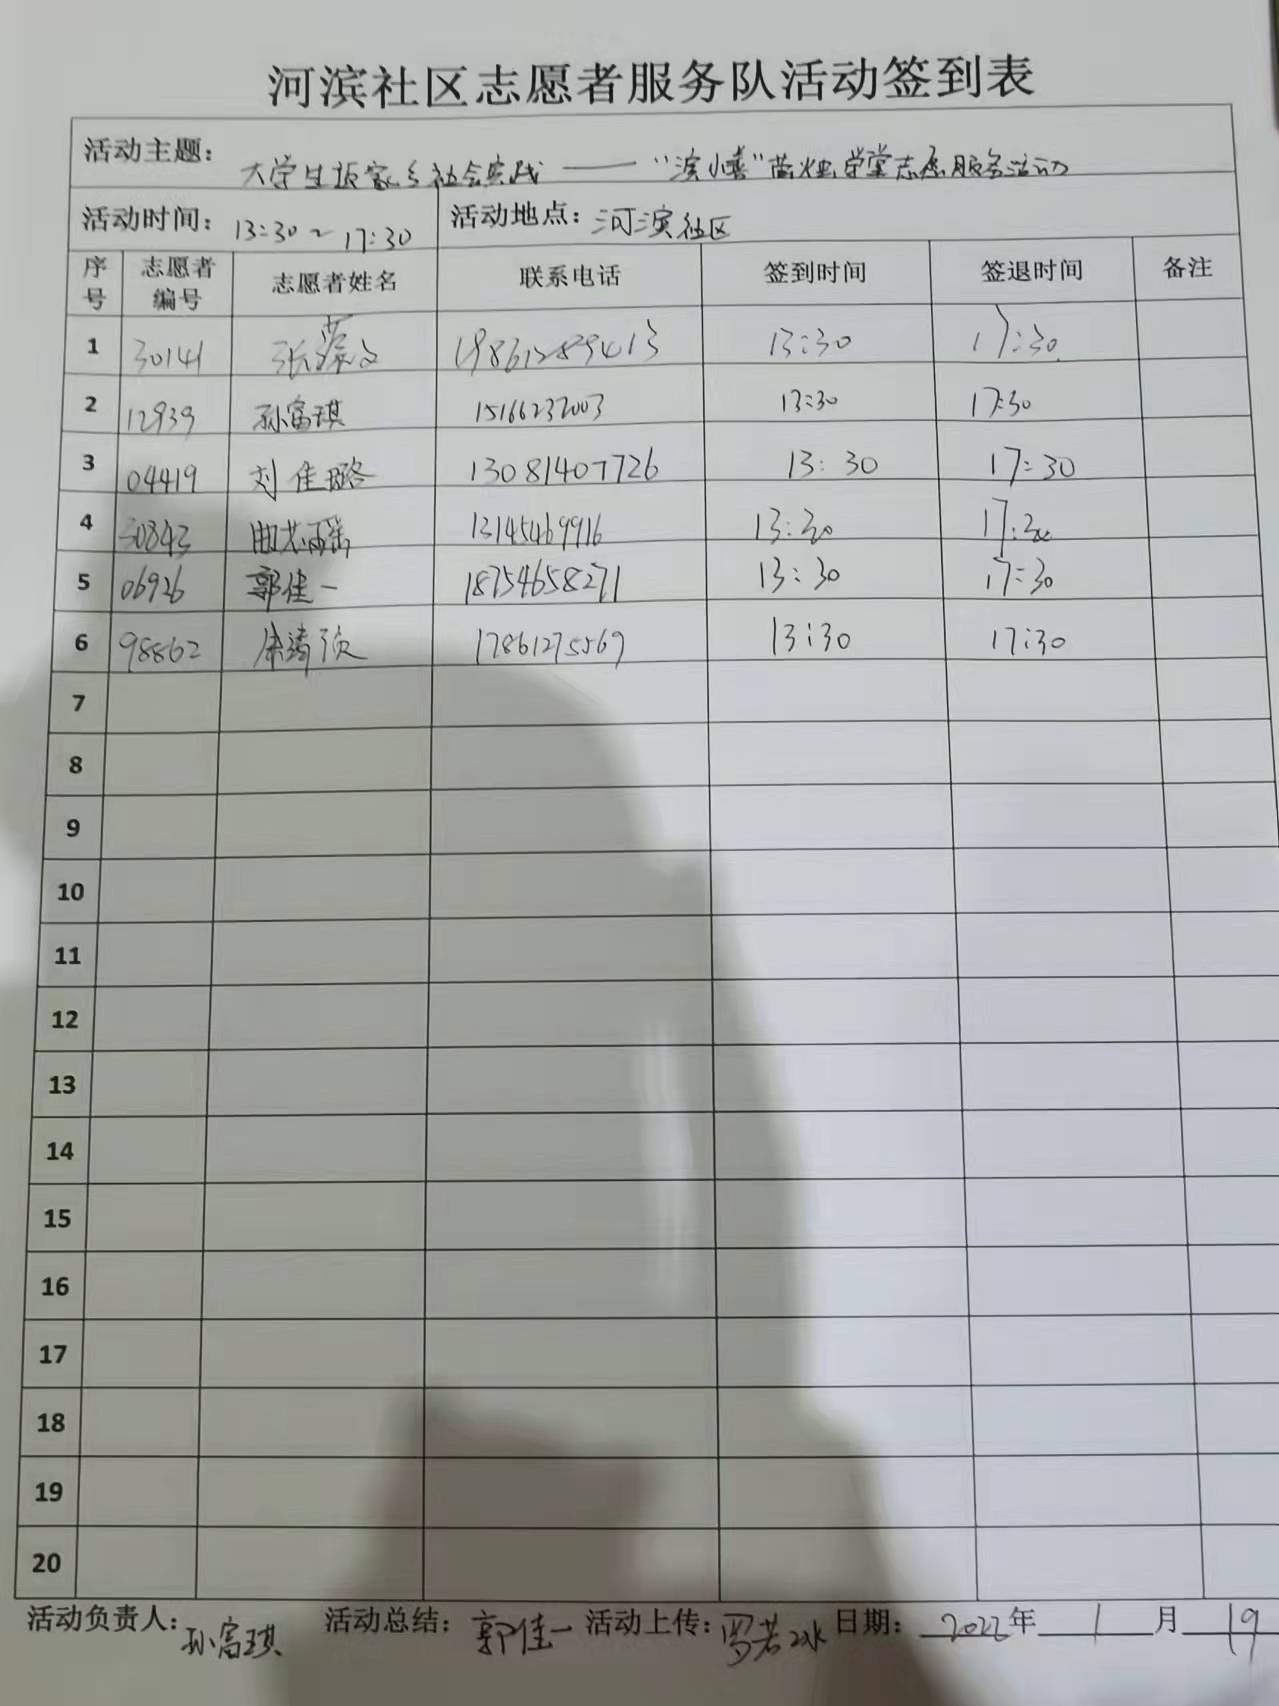 河滨社区志愿者服务队活动签到表
活动主题: 大学生返家乡社会实践——"滨小喜"营地学堂志愿服务活动
活动时间: 13:30~17:30 活动地点: 河滨社区
序号 志愿者编号 志愿者姓名 联系电话 签到时间 签退时间 备注
1 30141 张 文 13:30 17:30
2 12939 孙富琪 13:30 17:30
3 04419 刘佳璐 13081407726 13:30 17:30
4 30843 曲 瑶 13145469916 13:30 17:30
5 06926 郭佳一 18754658271 13:30 17:30
6 98862 17861275569 13:30 17:30
7
8
9
10
11
12
13
14
15
16
17
18
19
20
活动负责人: 孙富琪 活动总结: 郭佳一 活动上传: 罗若冰 日期: 2022年1月19